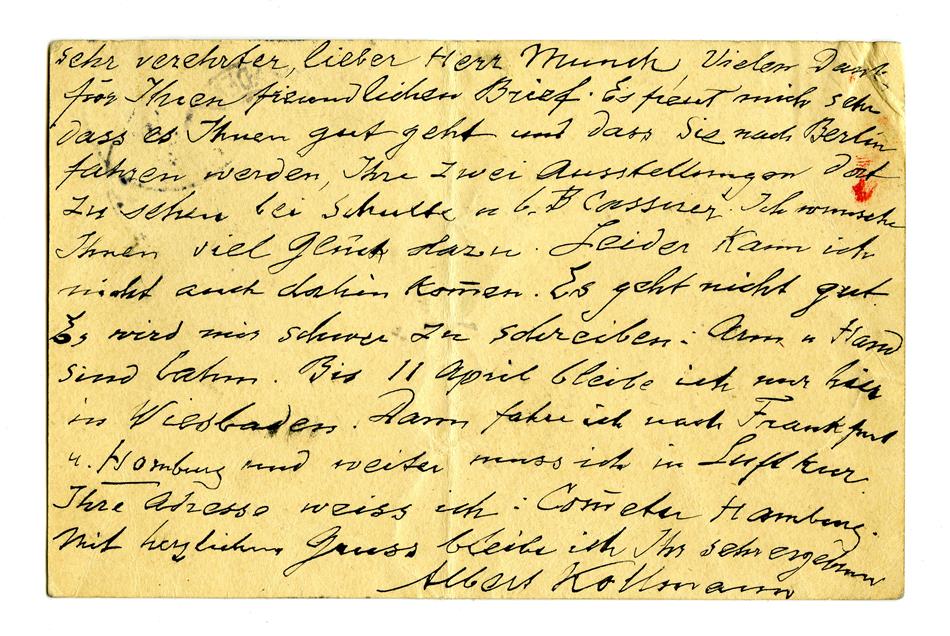 sehr verehrter, lieber Herr Munch Vielen Dank
für Ihren freundlichen Brief. Es freut mich sehr
dass es Ihnen gut geht und dass Sie nach Berlin
fahren werden, Ihre zwei Ausstellungen dort
zu sehen bei Schulte u b. B Cassirer. Ich wünsche
Ihnen viel Glück dazu. Leider kann ich
nicht auch dahin kom̅en. Es geht nicht gut.
Es wird mir schwer zu schreiben: Arm u Hand
sind lahm. Bis 11 April bleibe ich nur hier
in Wiesbaden. Dann fahre ich nach Frankfurt
u. Homburg und weiter muss ich in Luftkur
Ihre Adresse weiss ich: Com̅eter Hamburg.
Mit herzlichem Gruss bleibe ich Ihr sehr ergebener
Albert Kollmann